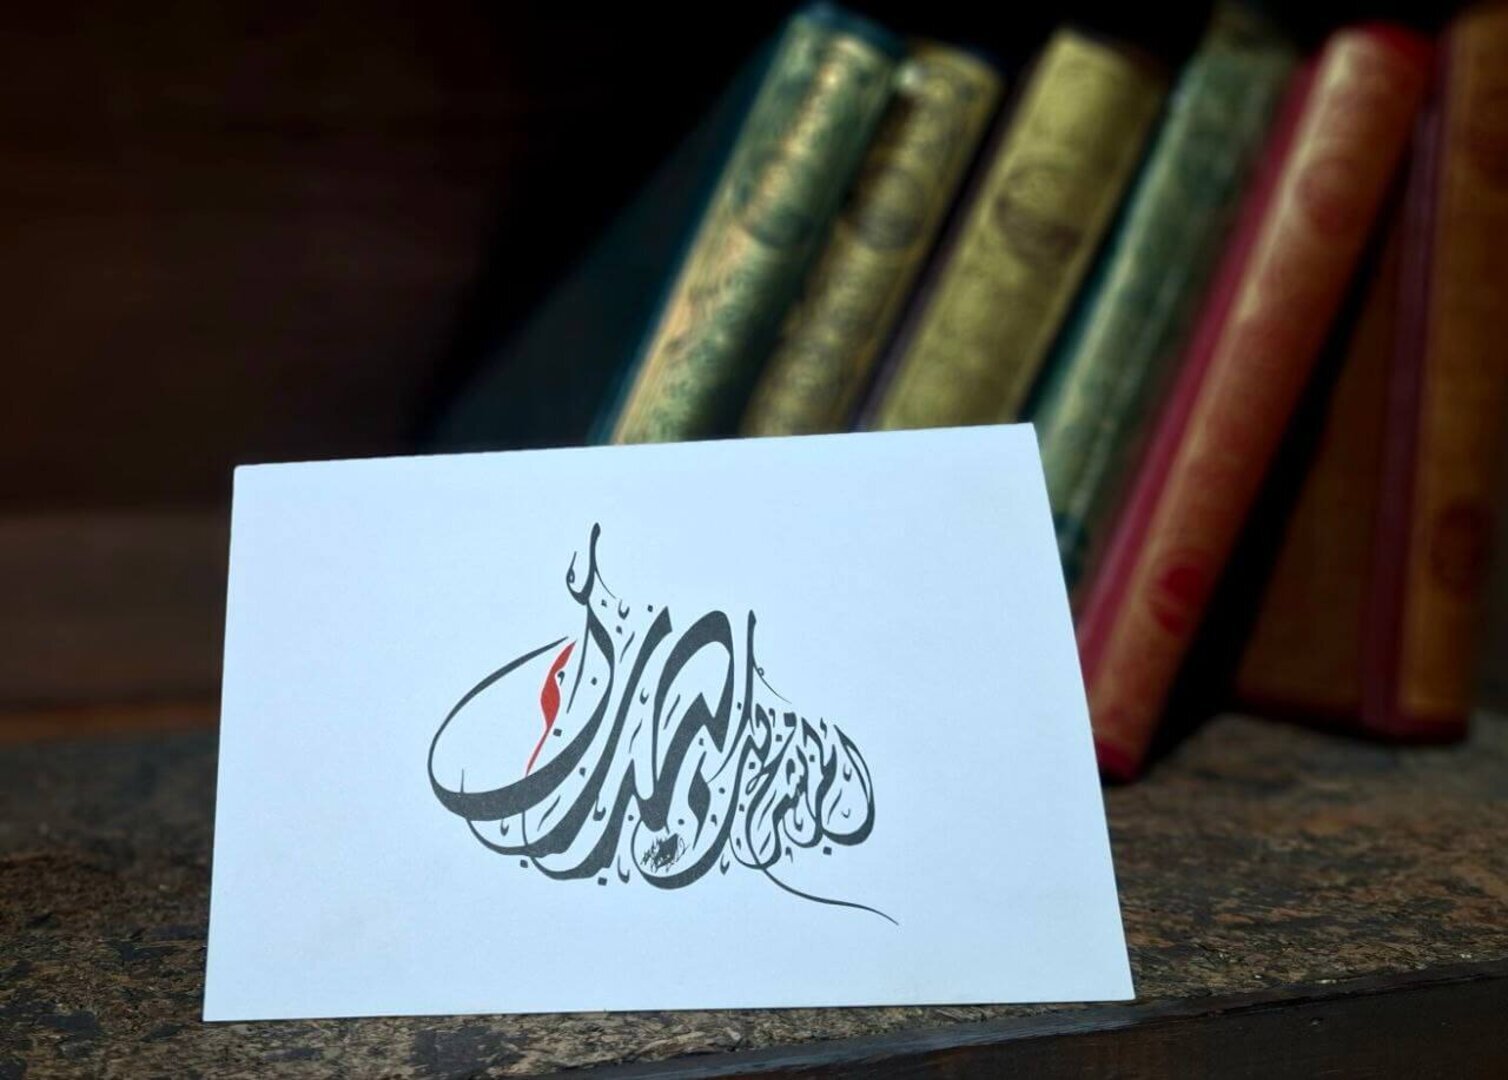 الم نشرح لك صدرك